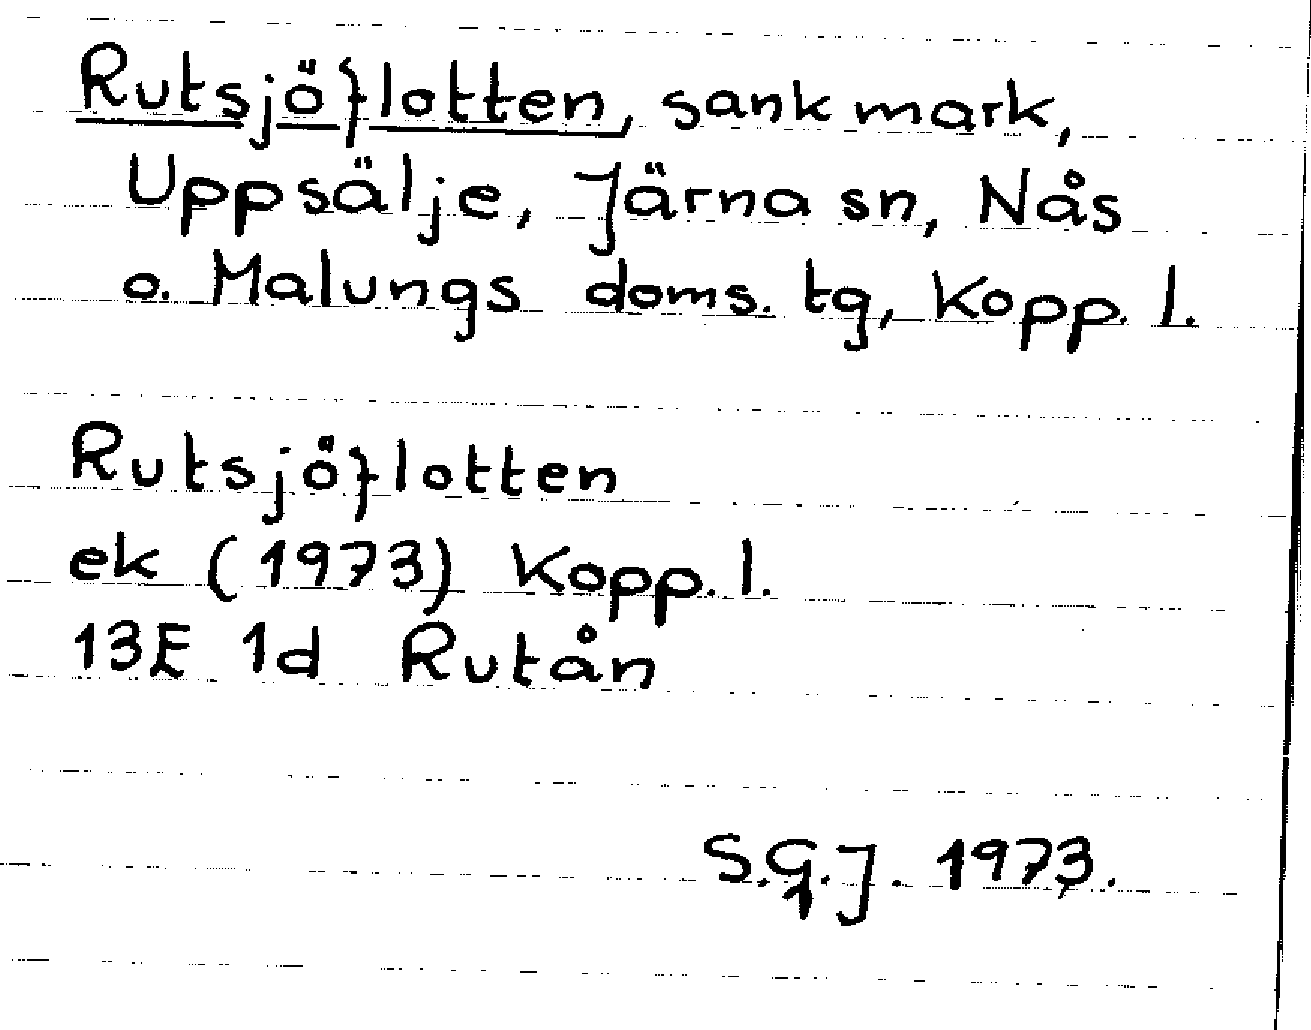 Rutsjöflotten, sank mark,
Uppsälje, Järna sn, Nås
o. Malungs doms. tg, Kopp. l.
Rutsjöflotten
ek (1973) Kopp. l.
13E 1d Rutån
S.G.J. 1973.